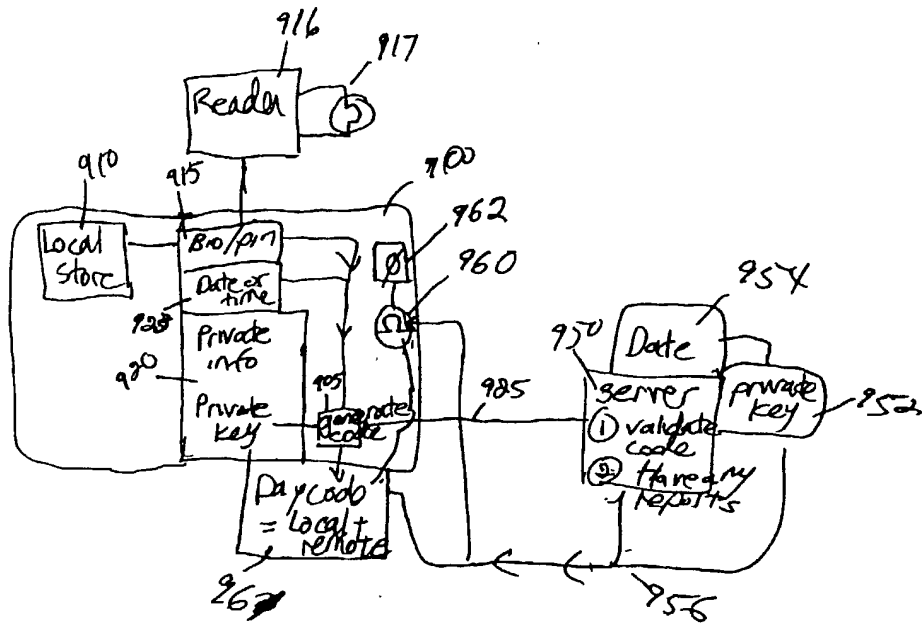 916
917
Reader
910
915
900
Local
Store
Bio/pin
962
960
Date or
time
925
Private
info
920
Private
key
905
generate
code
925
954
Date
950
Server
① validate
code
② Have any
reports
private
key
952
Day code
= Local +
remote
956